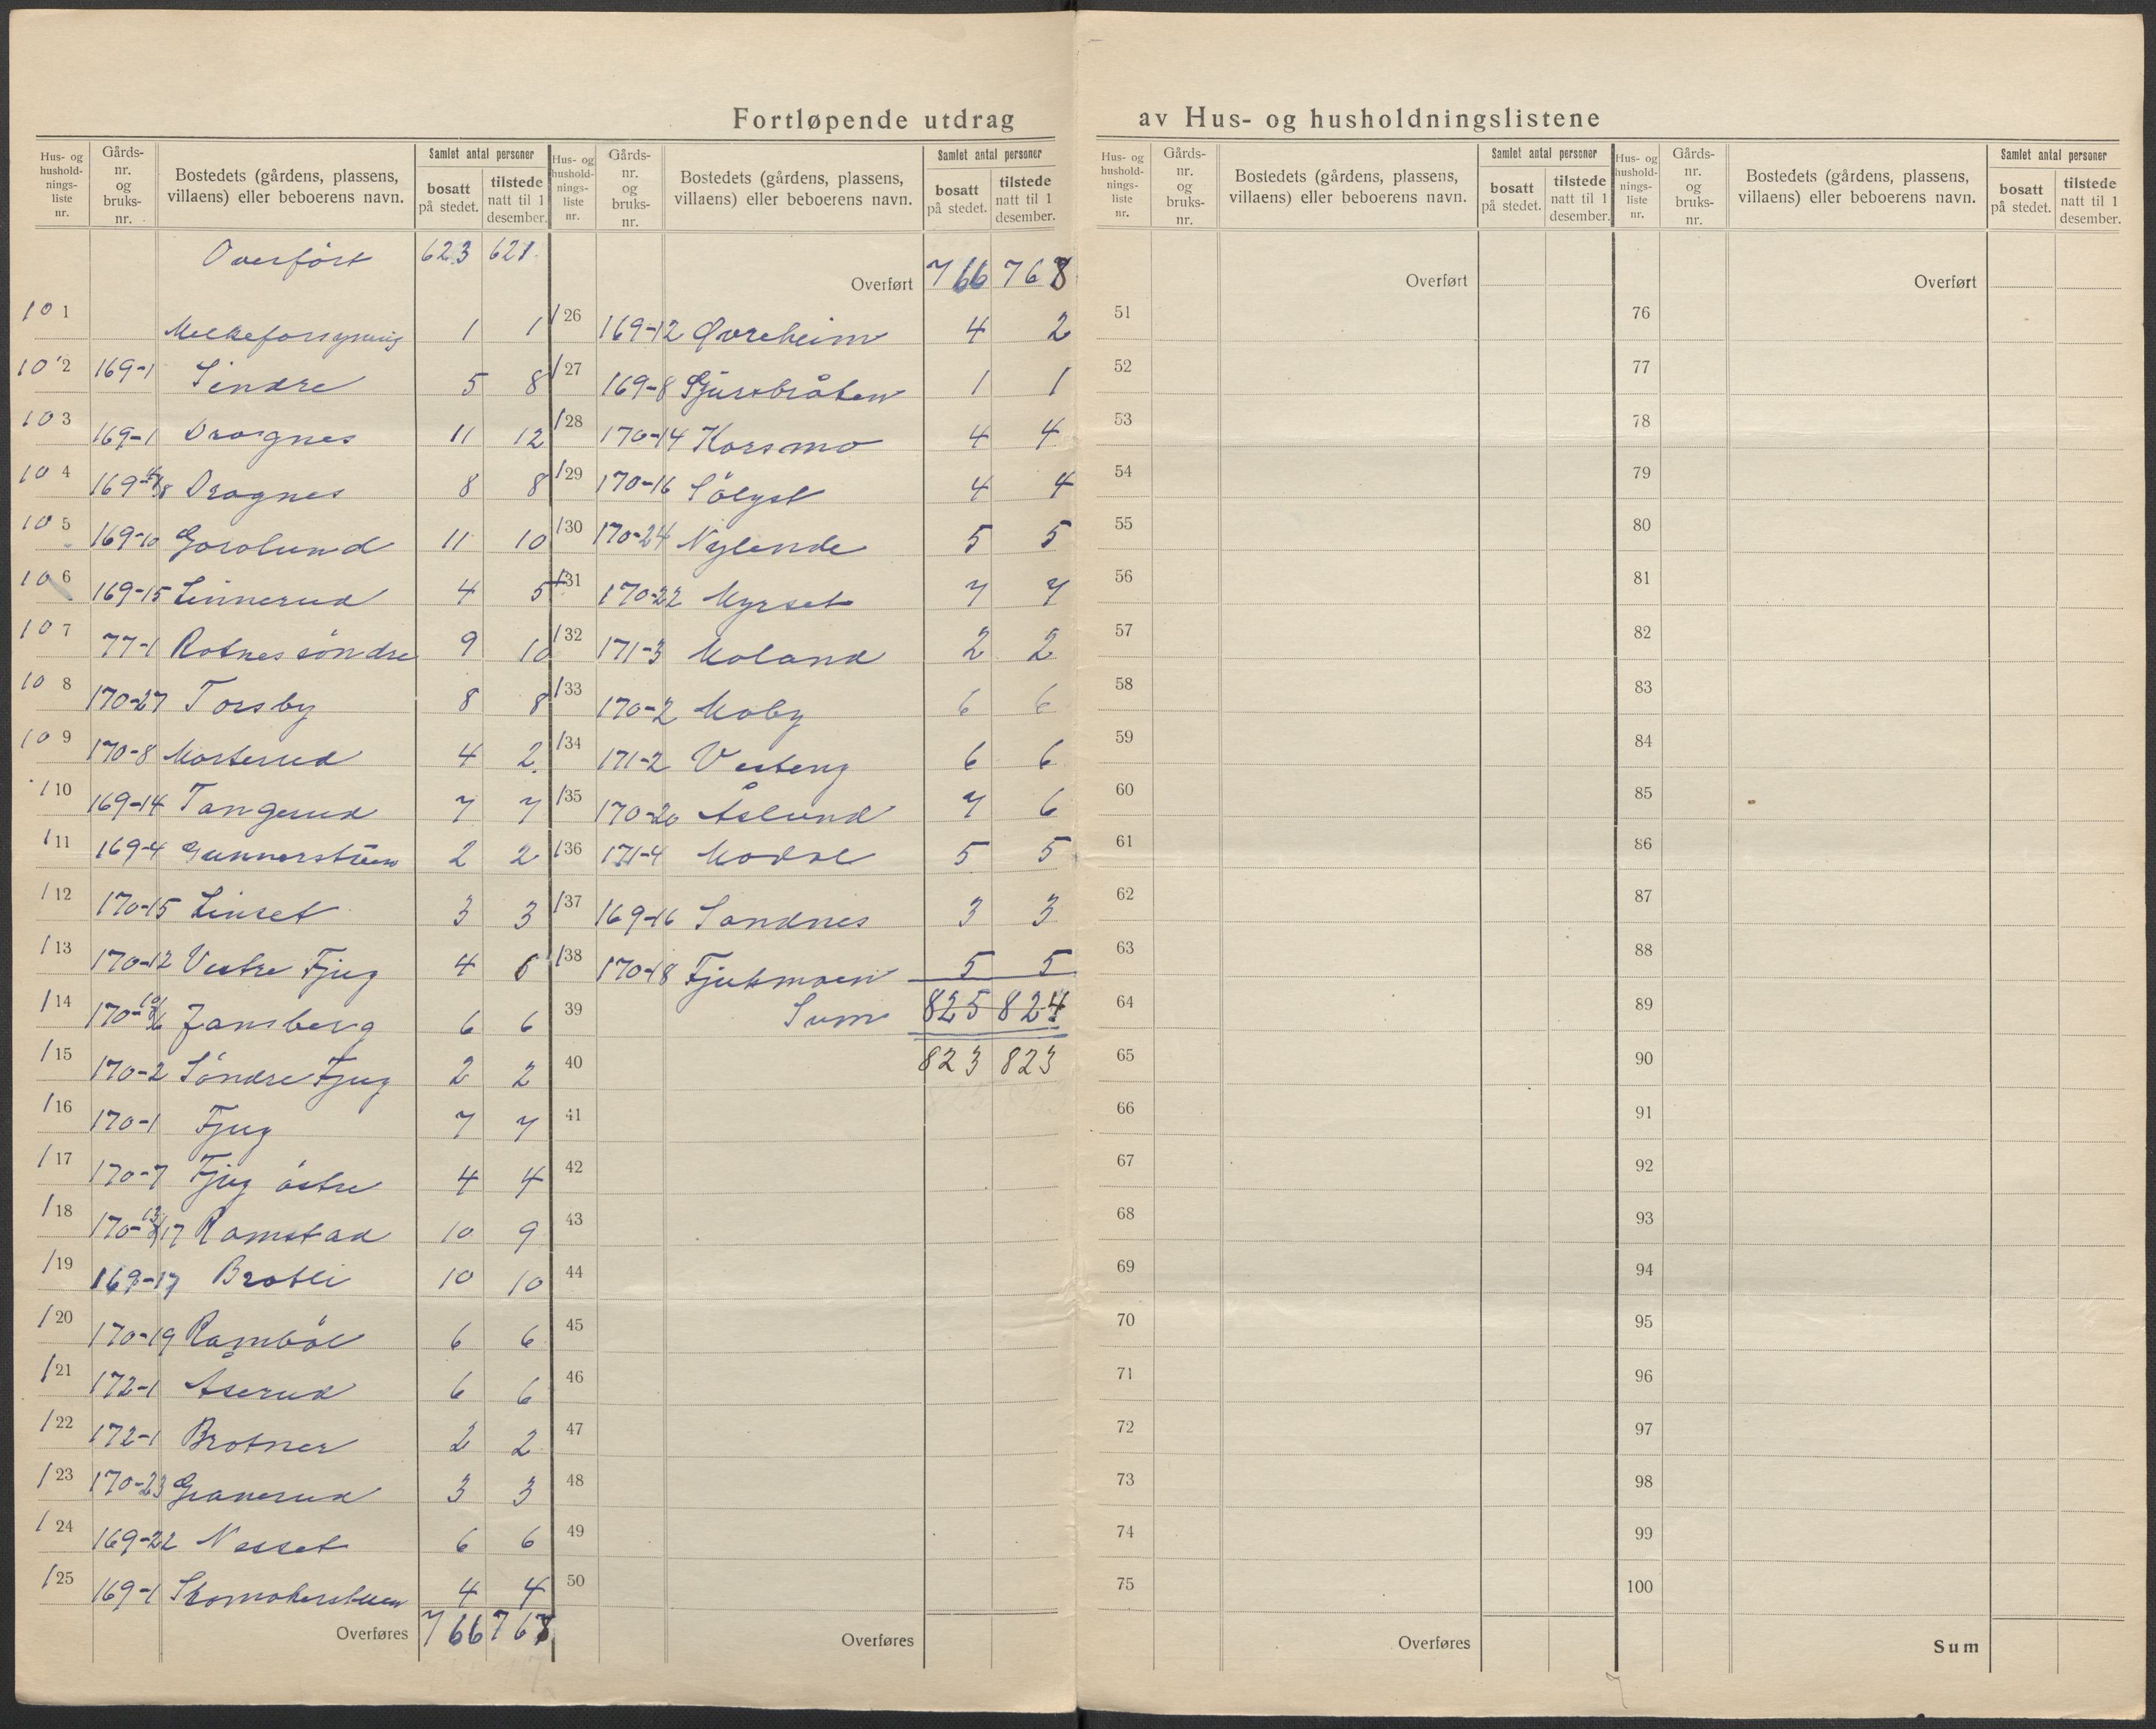 Fortløpende utdrag av Hus- og husholdningslistene
Hus- og hushold- nings- liste nr. Gårds- nr. og bruks- nr. Bostedets (gårdens, plassens, villaens) eller beboerens navn. Samlet antal personer bosatt på stedet. tilstede natt til 1 desember.
Overført 623 621
101 Melkeforsyning 1 1
102 169-1 Sindre 5 8
103 169-1 Dragnes 11 12
104 169- Dragnes 8 8
105 169-10 11 10
106 169-15 Linnerud 4 5
107 77-1 Rotnes söndre 9 10
108 170-27 Torsby 8 8
109 170-8 Morterud 4 2
110 169-14 Tangerud 7 7
111 169-4 Gunnerstuen 2 2
112 170-15 Linset 3 3
113 170-12 Vestre Fjug 4 6
114 170- Jansberg 6 6
115 170-2 Söndre Fjug 2 2
116 170-1 Fjug 7 7
117 170-7 Fjug östre 4 4
118 170- 17 Ramstad 10 9
119 169-17 Brotli 10 10
120 170-19 Ramböl 6 6
121 172-1 Åserud 6 6
122 172-1 Brotner 2 2
123 170-23 Granerud 3 3
124 169-22 Nesset 6 6
125 169-1 Skomakerstuen 4 4
Overføres 766 768
Hus- og hushold- nings- liste nr. Gårds- nr. og bruks- nr. Bostedets (gårdens, plassens, villaens) eller beboerens navn. Samlet antal personer bosatt på stedet. tilstede natt til 1 desember.
Overført 766 768
126 169-12 Øvreheim 4 2
127 169-8 1 1
128 170-14 Korsmo 4 4
129 170-16 Sölyst 4 4
130 170-24 Nylende 5 5
131 170-22 Myrset 7 7
132 171-3 Moland 2 2
133 170-2 Moby 6 6
134 171-2 Vesteng 6 6
135 170-20 Åslund 7 6
136 171-4 5 5
137 169-16 Sandnes 3 3
138 170-18 Fjukmoen 5 5
39 Sum 825 824
40 823 823
41
42
43
44
45
46
47
48
49
50
Overføres
Hus- og hushold- nings- liste nr. Gårds- nr. og bruks- nr. Bostedets (gårdens, plassens, villaens) eller beboerens navn. Samlet antal personer bosatt på stedet. tilstede natt til 1 desember.
Overført
51
52
53
54
55
56
57
58
59
60
61
62
63
64
65
66
67
68
69
70
71
72
73
74
75
Overføres
Hus- og hushold- nings- liste nr. Gårds- nr. og bruks- nr. Bostedets (gårdens, plassens, villaens) eller beboerens navn. Samlet antal personer bosatt på stedet. tilstede natt til 1 desember.
Overført
76
77
78
79
80
81
82
83
84
85
86
87
88
89
90
91
92
93
94
95
96
97
98
99
100
Sum